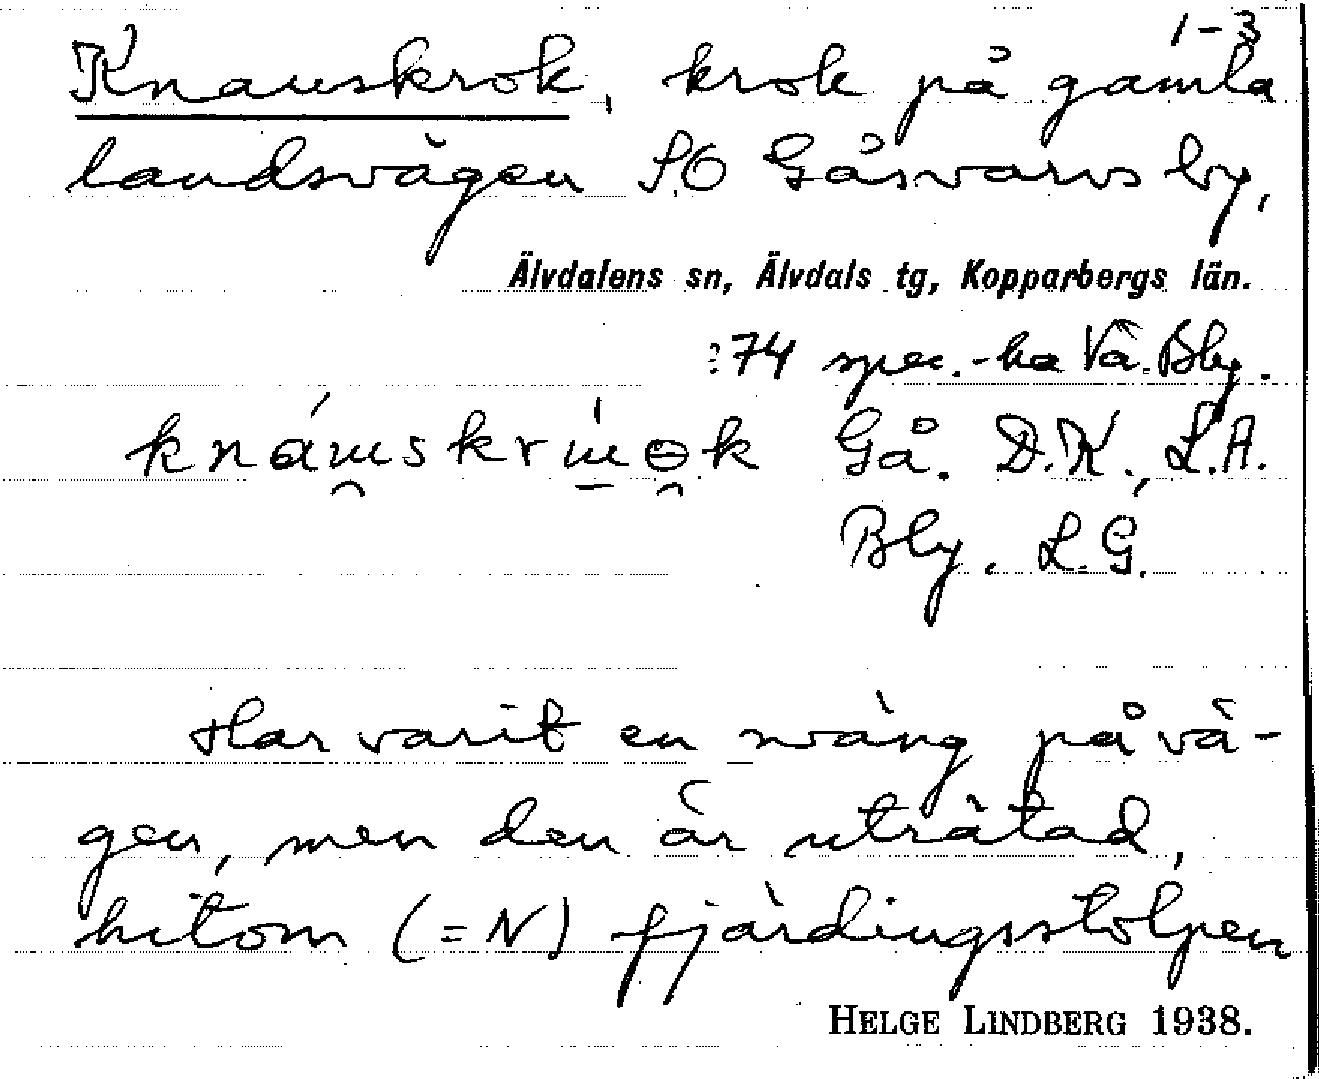 1-3
Knauskrok, krok på gamla
landsvägen S.O Gåsvarvs by,
Älvdalens sn, Älvdals tg, Kopparbergs län.
74 spec.-ka Vä. Bly.
Gå. D.K., L.A.
Bly. L.G.
Har varit en sväng på vä-
gen, men den är uträtad,
hitom (=N) fjärdingsstolpen
HELGE LINDBERG 1938.